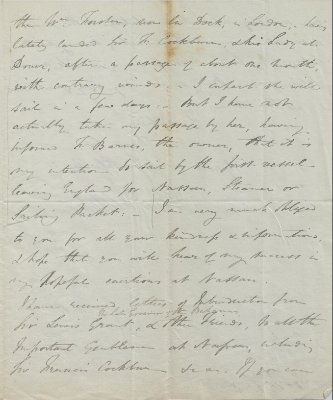 the Wm. Thornton, now in Dock, in London, has
lately landed Sir F. Cockburn, & his Lady, at
Dover, after a passage of about one month
with contrary winds - I expect she will
sail in a few days - But I have not
actually taken my passage by her, having
informed Mr Barnes, the owner, that it is
my intention to sail by the first vessel
leaving England for Nassau, Steamer or
Sailing Packet: - I am very much obliged
to you for all your kindness & information,
& hope that you will hear of my success in
my hopeful exertions at Nassau.
I have received letters of Introduction from
the late Governor of the Bahamas
Sir Lewis Grant, & other friends, to all the
Important Gentlemen at Nassau, including
Sir Francis Cockburn &c &c. If you can